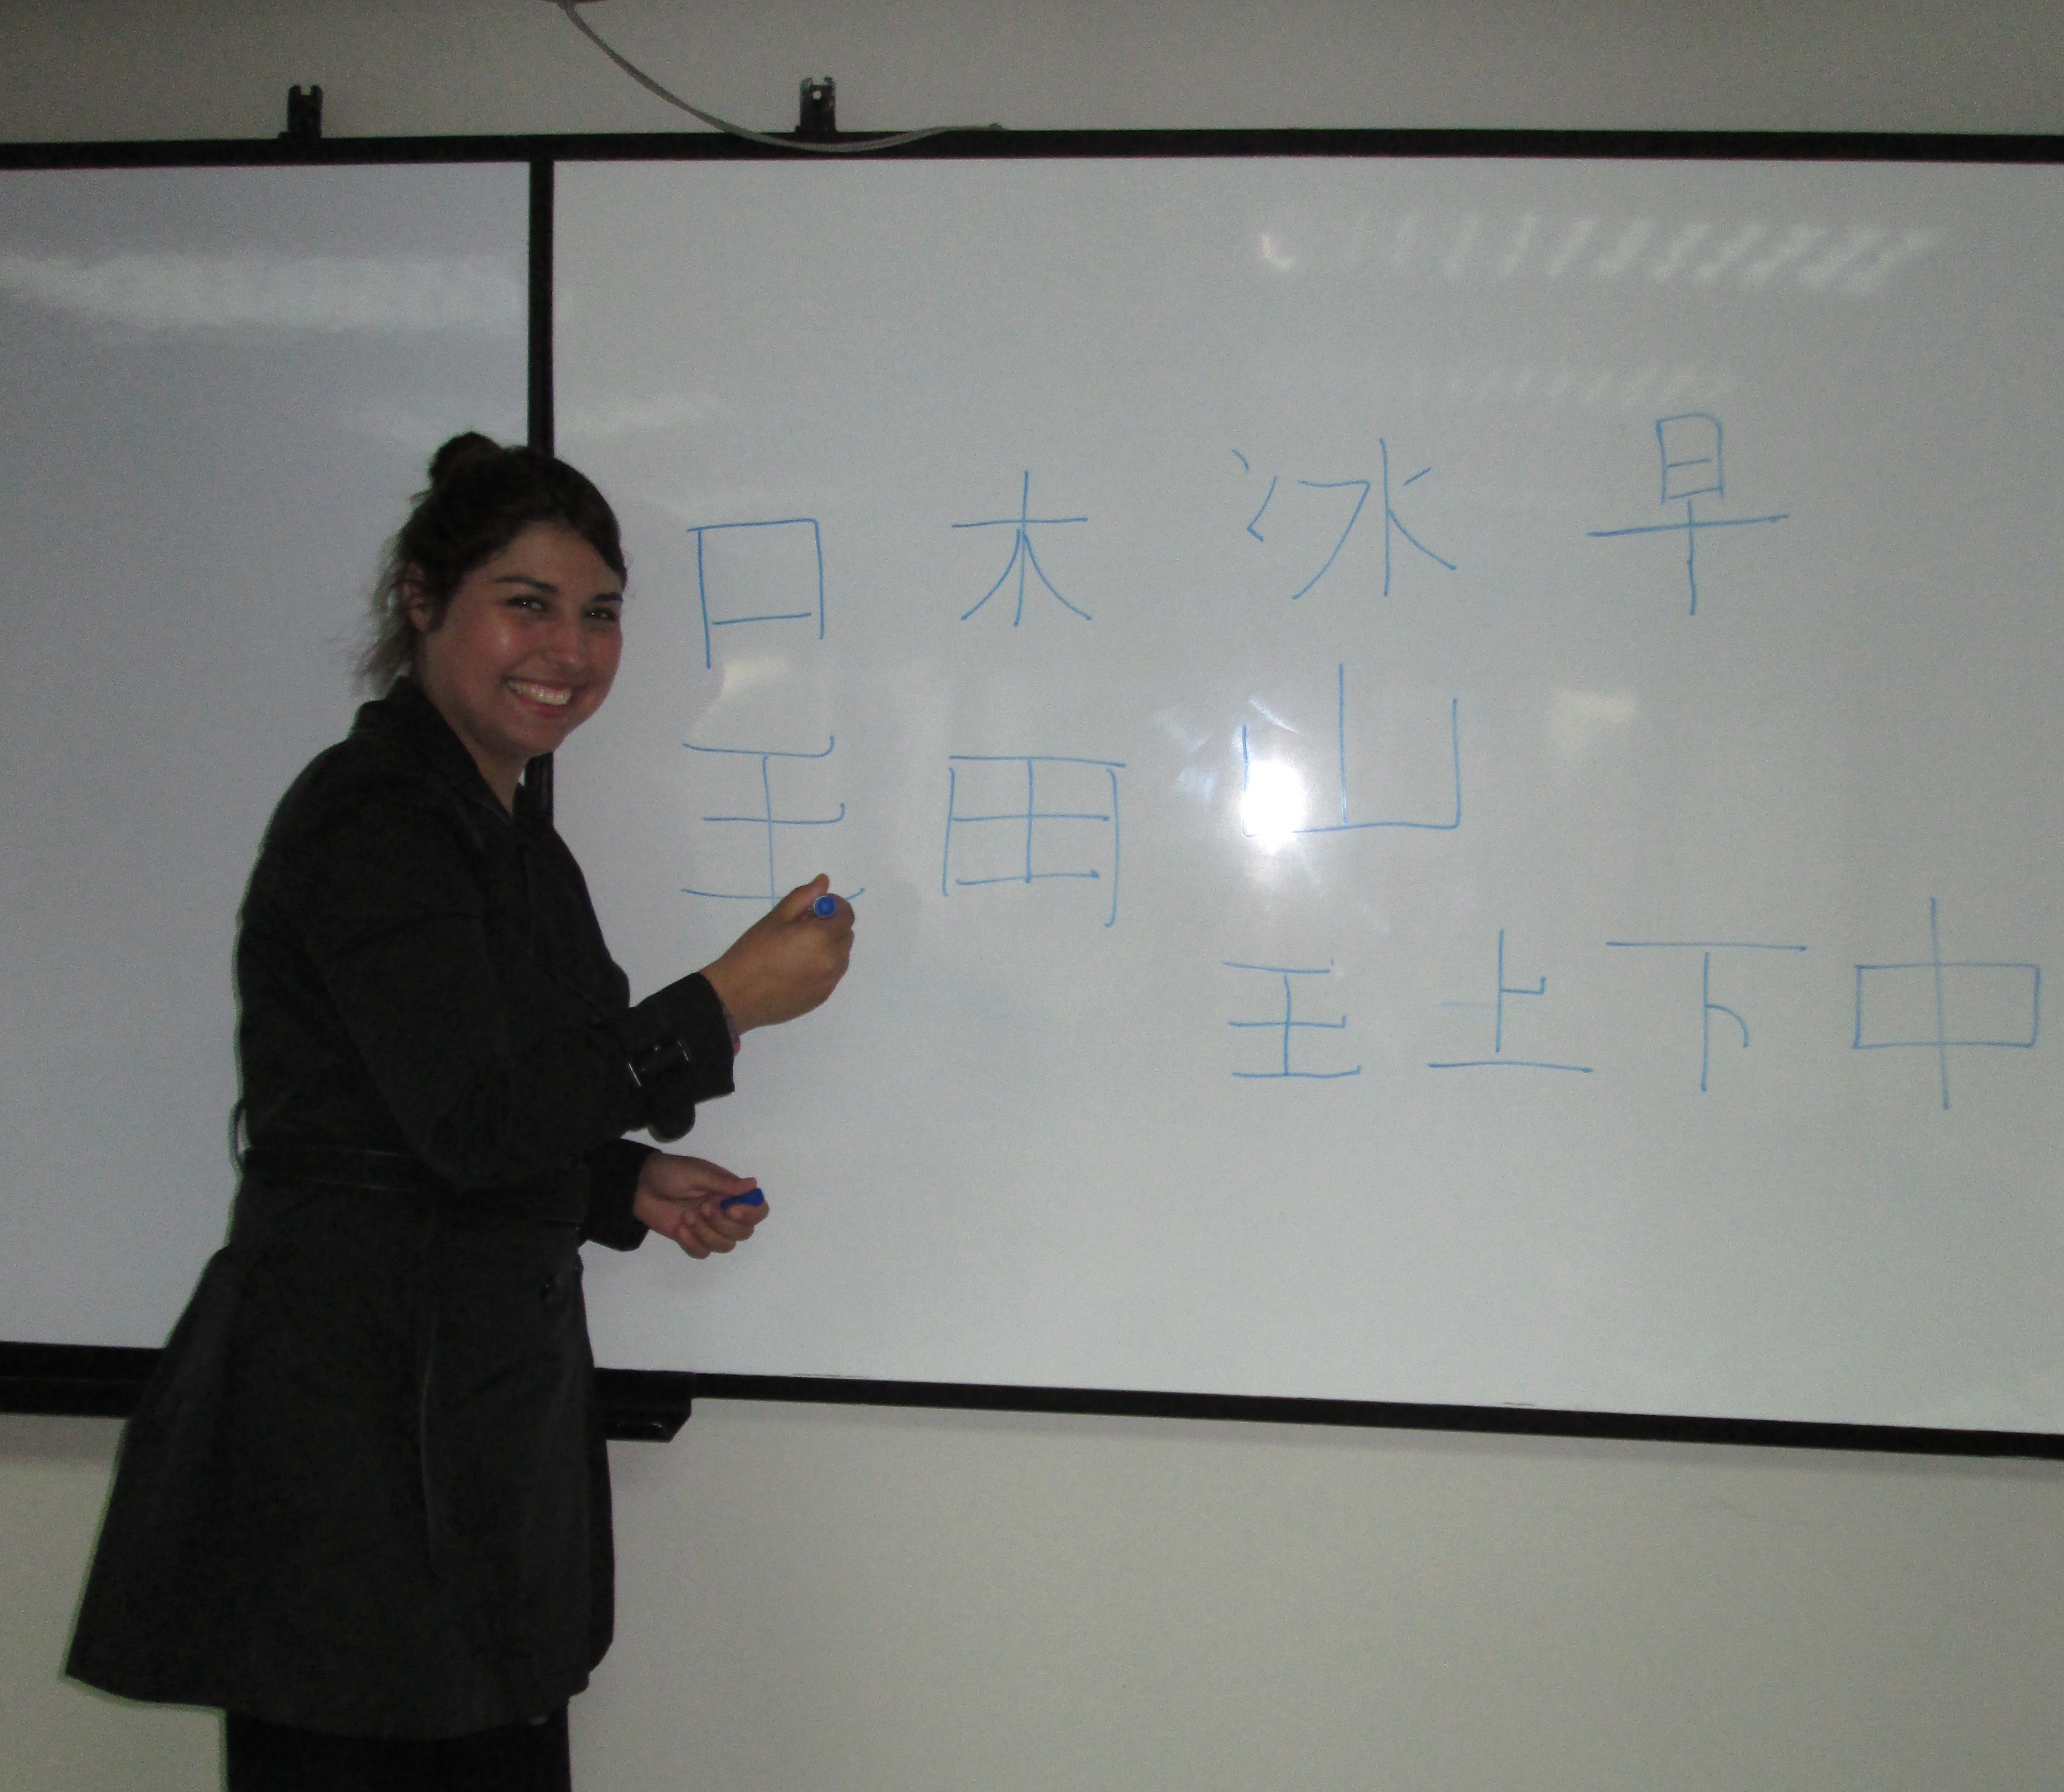 口 木 冰 早
王 田 山
王 上 下 中